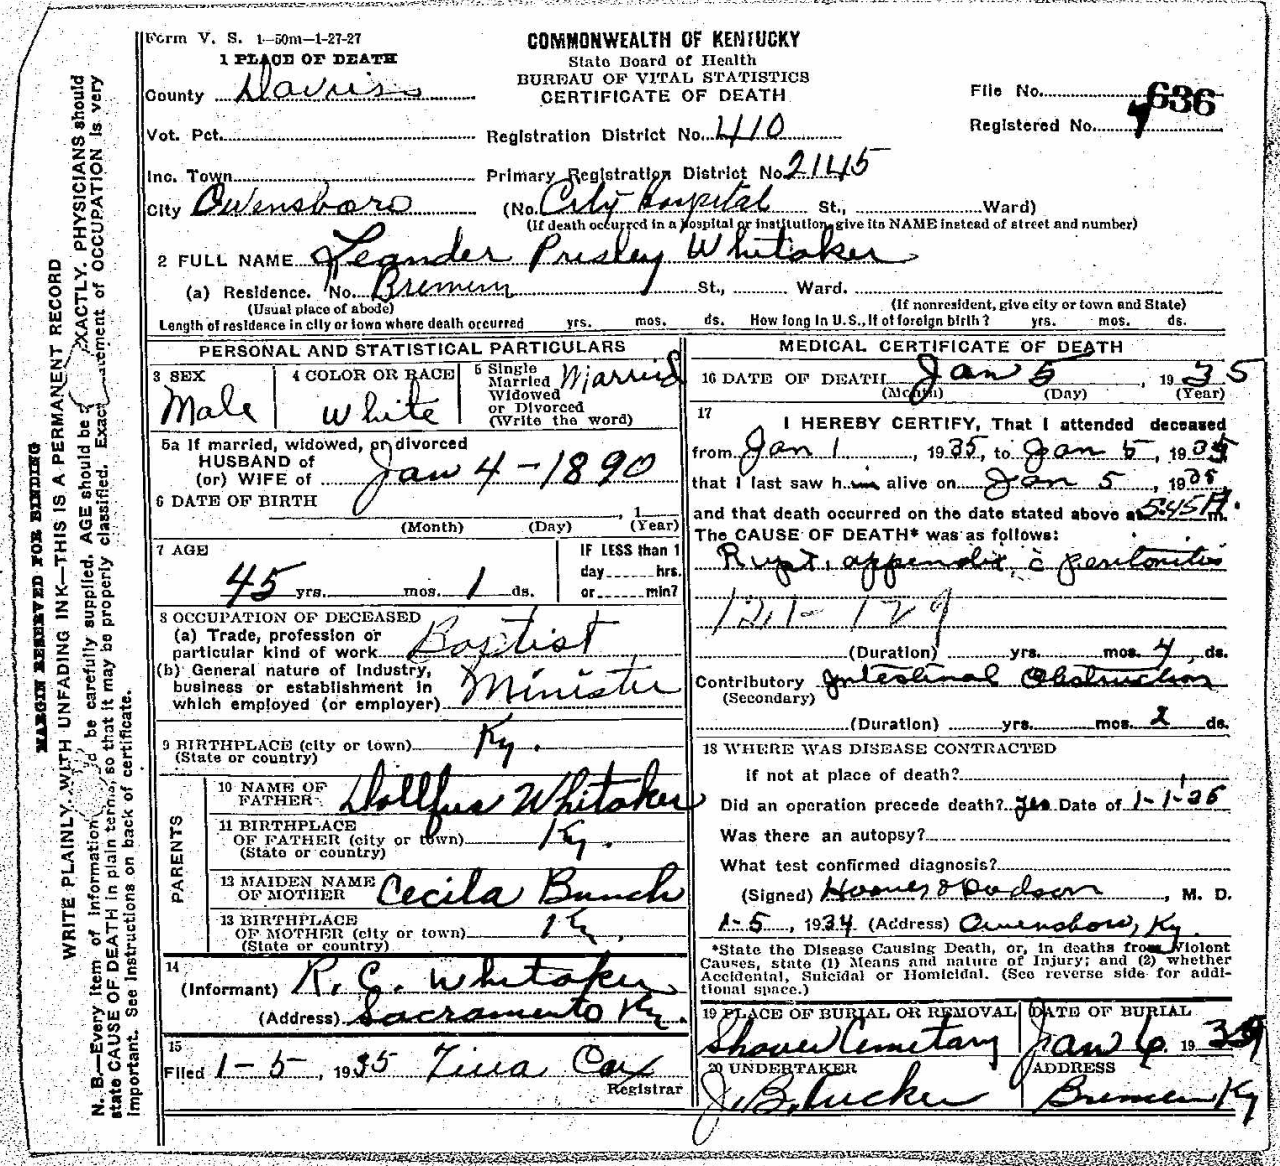 Form V. S. 1—50m—1-27-27
COMMONWEALTH OF KENTUCKY
State Board of Health
BUREAU OF VITAL STATISTICS
CERTIFICATE OF DEATH
File No. 636
Registered No. 4
1 PLACE OF DEATH
County Daviess
Vot. Pct.
Registration District No. 410
Inc. Town
Primary Registration District No. 2145
City Owensboro (No. City Hospital St., Ward)
(If death occurred in a hospital or institution, give its NAME instead of street and number)
2 FULL NAME Leander Presley Whitaker
(a) Residence. No. Bremen St., Ward.
(Usual place of abode) (If nonresident, give city or town and State)
Length of residence in city or town where death occurred yrs. mos. ds. How long in U.S., if of foreign birth? yrs. mos. ds.
PERSONAL AND STATISTICAL PARTICULARS
3 SEX Male
4 COLOR OR RACE White
5 Single Married Widowed or Divorced (Write the word) Married
5a If married, widowed, or divorced
HUSBAND of
(or) WIFE of Jan 4 - 1890
6 DATE OF BIRTH , 1
(Month) (Day) (Year)
7 AGE
45 yrs. mos. 1 ds.
IF LESS than 1
day hrs.
or min?
8 OCCUPATION OF DECEASED
(a) Trade, profession or
particular kind of work Baptist
(b) General nature of industry,
business or establishment in
which employed (or employer) Minister
9 BIRTHPLACE (city or town) Ky.
(State or country)
PARENTS
10 NAME OF
FATHER Dollfus Whitaker
11 BIRTHPLACE
OF FATHER (city or town) Ky.
(State or country)
12 MAIDEN NAME
OF MOTHER Cecila Bunch
13 BIRTHPLACE
OF MOTHER (city or town) Ky.
(State or country)
14
(Informant) R. C. Whitaker
(Address) Sacramento Ky.
15
Filed 1-5, 1935 Tina Cox
Registrar
MEDICAL CERTIFICATE OF DEATH
16 DATE OF DEATH Jan 5, 1935
(Month) (Day) (Year)
17
I HEREBY CERTIFY, That I attended deceased
from Jan 1, 1935, to Jan 5, 1935
that I last saw him alive on Jan 5, 1935,
and that death occurred on the date stated above at 5:45 A. m.
The CAUSE OF DEATH* was as follows:
Rupt. appendix, c peritonitis
121-129
(Duration) yrs. mos. 4 ds.
Contributory Intestinal Obstruction
(Secondary)
(Duration) yrs. mos. 2 ds.
18 WHERE WAS DISEASE CONTRACTED
if not at place of death?
Did an operation precede death? yes Date of 1-1-35
Was there an autopsy?
What test confirmed diagnosis?
(Signed) Dodson, M. D.
1-5, 1934 (Address) Owensboro, Ky.
*State the Disease Causing Death, or, in deaths from Violent
Causes, state (1) Means and nature of Injury; and (2) whether
Accidental, Suicidal or Homicidal. (See reverse side for addi-
tional space.)
19 PLACE OF BURIAL OR REMOVAL
Shaver Cemetary
DATE OF BURIAL
Jan 6, 1935
20 UNDERTAKER
J. B. Tucker
ADDRESS
Bremen Ky
MARGIN RESERVED FOR BINDING
WRITE PLAINLY, WITH UNFADING INK—THIS IS A PERMANENT RECORD
N. B.—Every item of information should be carefully supplied. AGE should be stated EXACTLY. PHYSICIANS should
state CAUSE OF DEATH in plain terms, so that it may be properly classified. Exact statement of OCCUPATION is very
important. See instructions on back of certificate.